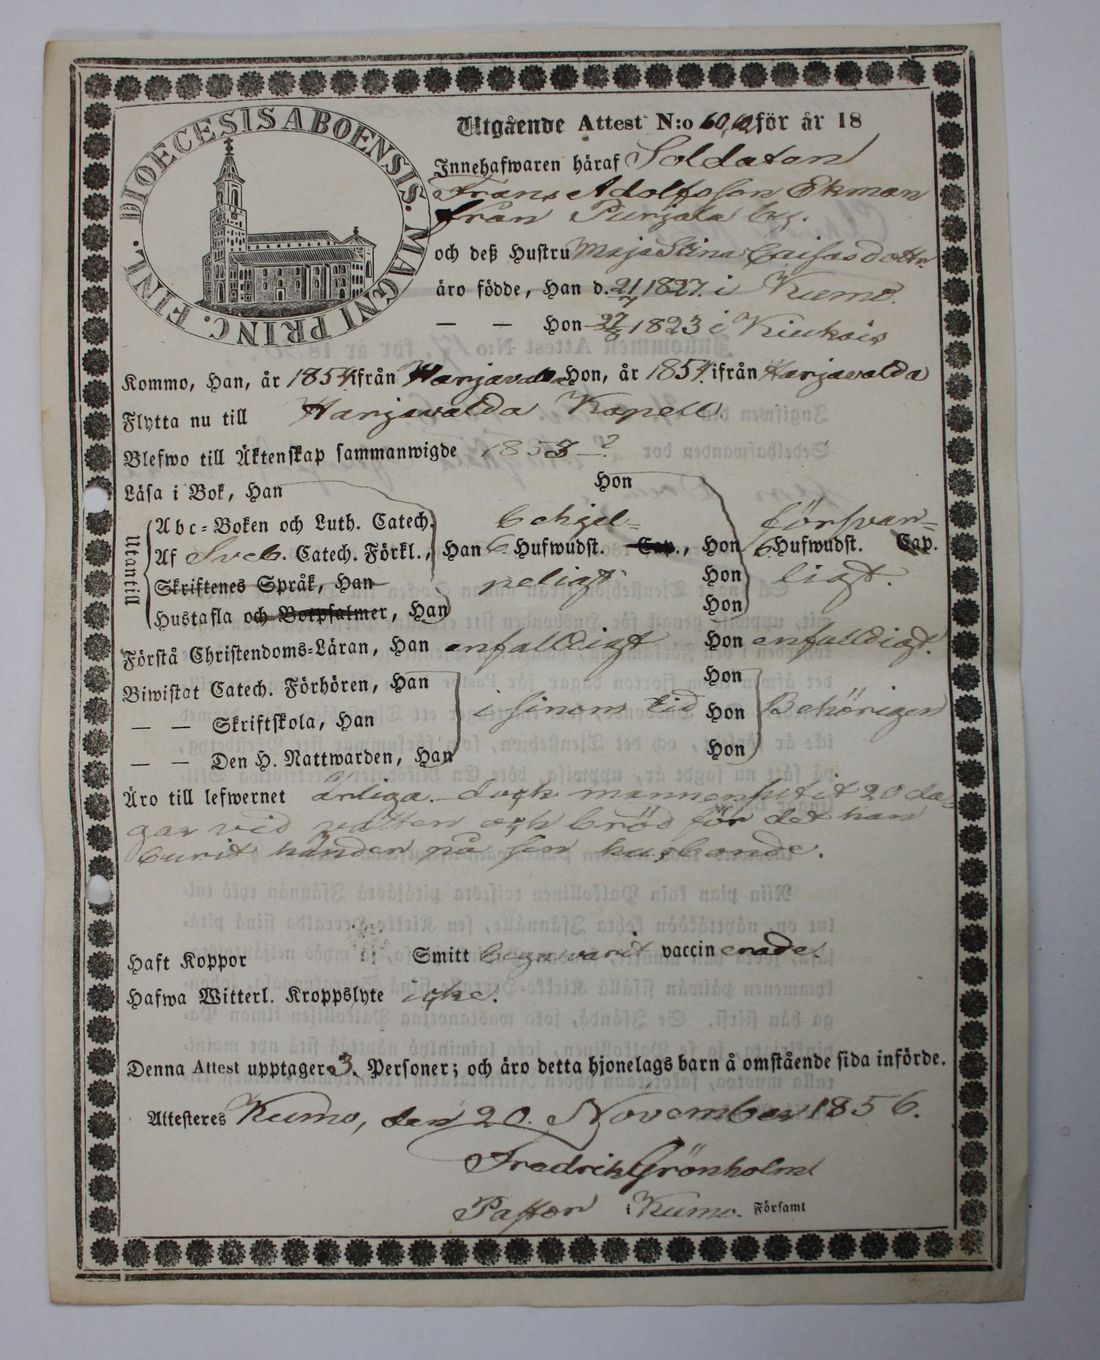 DIOECESIS ABOENSIS. MAGNI PRINC. FINL.
Utgående Attest N:o 60, för år 18
Innehafwaren häraf Soldaten
Frans Adolfsson Ekman
från Purjala by.
och deß Hustru Maja Stina Caisasdotter
äro födde, Han d. 21/ 1827. i Kumo.
— — Hon 22/ 1823 i Kiukais
Kommo, Han, år 1854 ifrån Harjavalda Hon, år 1854. ifrån Harjavalda
Flytta nu till Harjavalda Kapell.
Blefwo till Äktenskap sammanwigde 1853 - ?
Läsa i Bok, Han Hon
Utantill
Abc-Boken och Luth. Catech. behjel= försvar=
Af Sveb. Catech. Förkl., Han 6 Hufwudst. Cap., Hon 6 Hufwudst. Cap.
Skriftenes Språk, Han peligt Hon ligt.
Hustafla och Botpsalmer, Han Hon
Förstå Christendoms-Läran, Han enfalldigt Hon enfalldigt.
Biwistat Catech. Förhören, Han Hon
— — Skriftskola, Han i sinom tid Hon Behörigen
— — Den H. Nattwarden, Han Hon
Äro till lefwernet ärliga. dock mannen sutit 20 da
gar vid vatten och bröd för det han
burit händer på sin husbonde.
Haft Koppor Smitt bega varit vaccinerade.
Hafwa Witterl. Kroppslyte icke.
Denna Attest upptager 3. Personer; och äro detta hjonelags barn å omstående sida införde.
Attesteres Kumo, den 20. November 1856.
Fredrik Grönholm
Pastor i Kumo. Församl